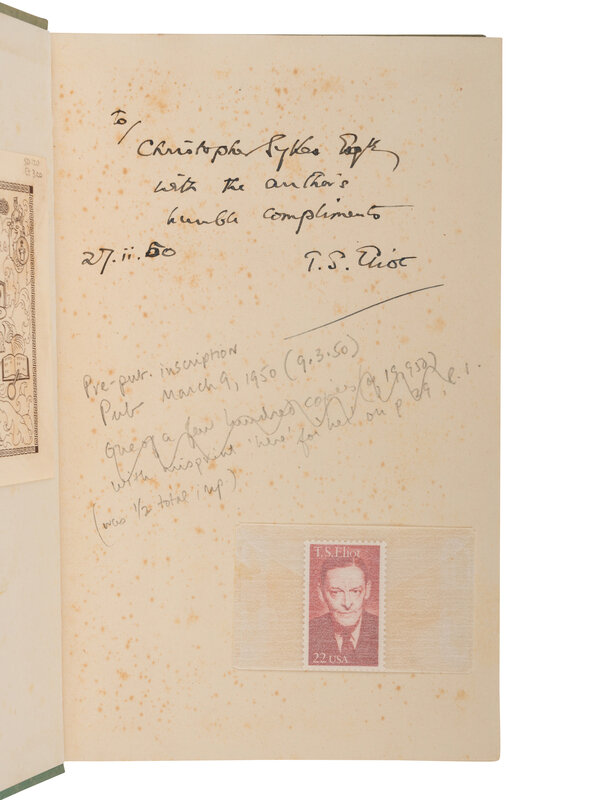 To/
Christopher Sykes Esqre
with the author's
humble compliments
27.ii.50
T. S. Eliot
Pre-pub. inscription
Pub March 9, 1950 (9.3.50)
One of a few hundred copies (of 19,950)
with misprint 'here' for her on p 29, l. 1.
(was 1/2 total imp)
T.S. Eliot
22 USA